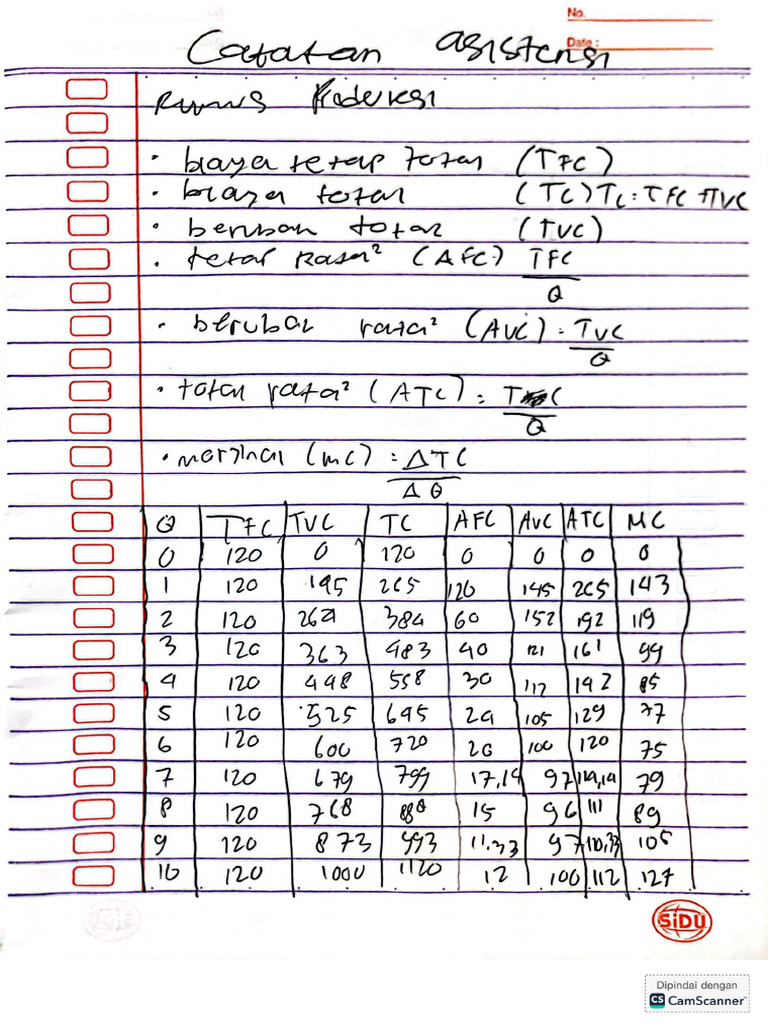 No.
Date :
Catatan asistensi
Rumus Produksi
• biaya tetap total (TFC)
• biaya total (TC) TC = TFC + TVC
• berubah total (TVC)
• tetap rata² (AFC) TFC
Q
• berubah rata² (AVC) = TVC
Q
• total rata² (ATC) = TC
Q
• marjinal (MC) = ΔTC
ΔQ
Q TFC TVC TC AFC AVC ATC MC
0 120 0 120 0 0 0 0
1 120 195 265 120 145 265 143
2 120 264 384 60 152 192 119
3 120 363 483 40 121 161 99
4 120 448 558 30 112 142 85
5 120 525 645 24 105 129 77
6 120 600 720 20 100 120 75
7 120 679 799 17,14 97 114,14 79
8 120 768 888 15 96 111 89
9 120 873 993 11.33 97 110,33 105
10 120 1000 1120 12 100 112 127
SiDU
Dipindai dengan
CS CamScanner